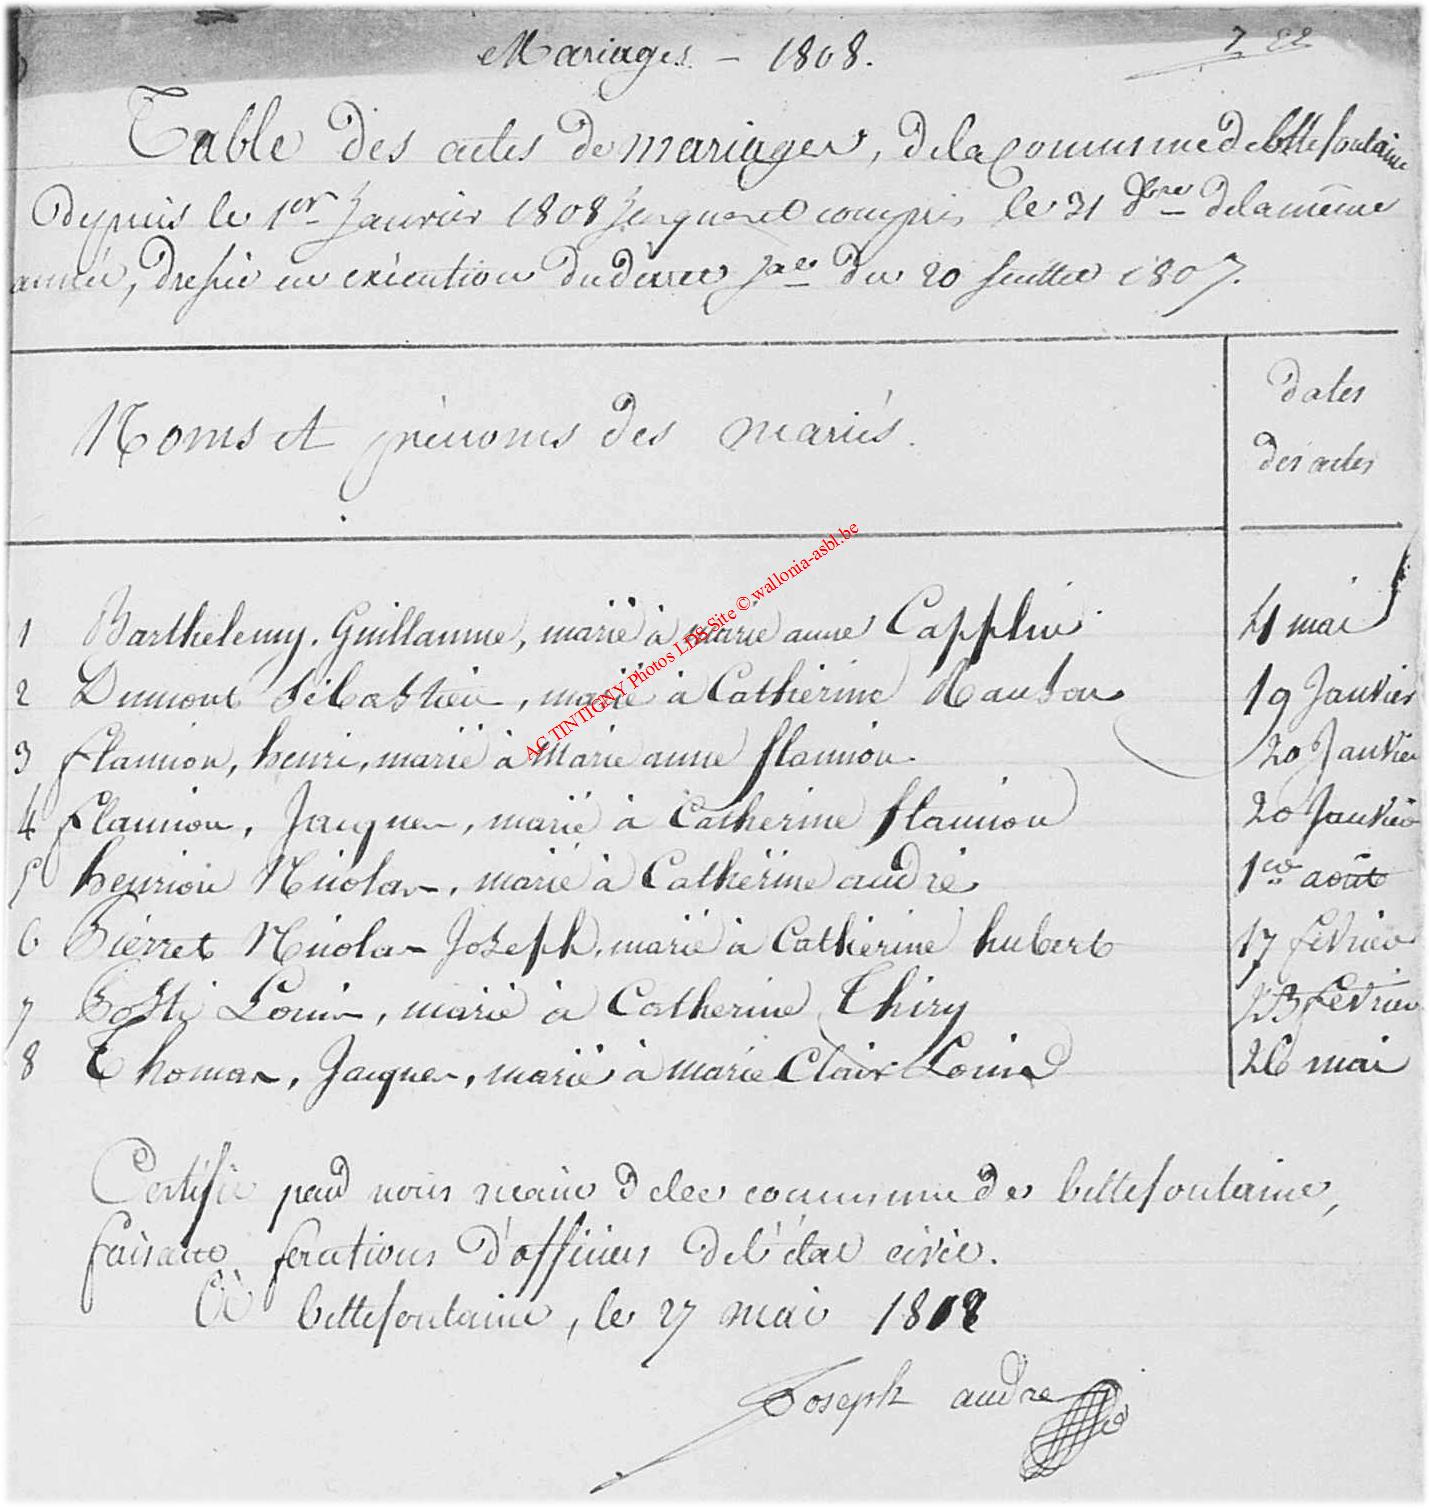 Mariages. - 1808.
Table des actes de mariages, de la Commune de bellefontaine
depuis le 1er Janvier 1808 Jusques et compris le 31 Xbre de la même
année, dressée en exécution du décret du 20 Juillet 1807.
Noms et prénoms des mariés.
dates
des actes
1 Barthelemy, Guillaume, marié à marie anne Capplin 4 mai
2 Dumont Sébastien, marié à Catherine Rauson 19 Janvier
3 flamion, henri, marié à Marie anne flamion. 20 Janvier
4 flamion, Jacques, marié à Catherine flamion 20 Janvier
5 henrion Nicolas, marié à Catherine andré 1er août
6 Pierret Nicolas Joseph, marié à Catherine hubert 17 février
7 Posti Louis, marié à Catherine Thiry 23 février
8 Thomas, Jacques, marié à marie Clair Louis 26 mai
Certifié par nous maire de la commune de bellefontaine,
faisant fonctions d'officier de l'état civil.
à bellefontaine, le 27 mai 1818
Joseph andre
AC TINTIGNY Photos LDS Site © wallonia-asbl.be